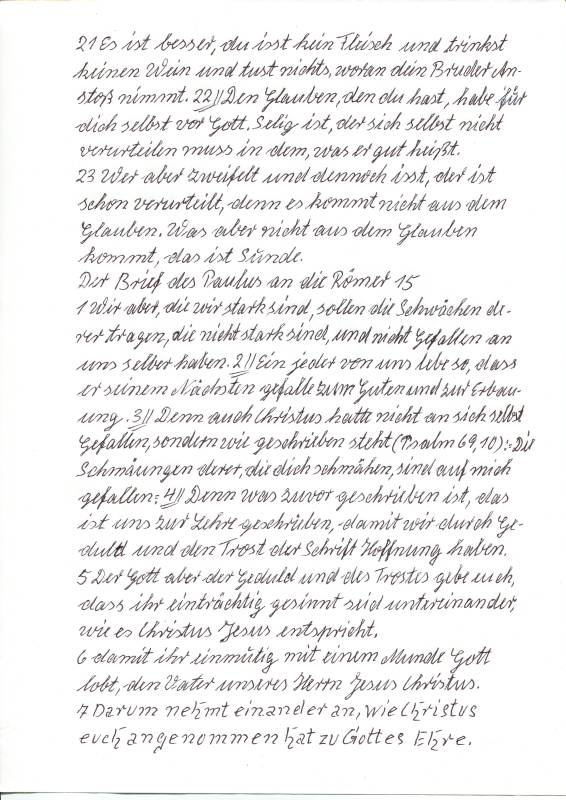 21 Es ist besser, du isst kein Fleisch und trinkst
keinen Wein und tust nichts, woran dein Bruder An-
stoß nimmt. 22 || Den Glauben, den du hast, habe für
dich selbst vor Gott. Selig ist, der sich selbst nicht
verurteilen muss in dem, was er gut heißt.
23 Wer aber zweifelt und dennoch isst, der ist
schon verurteilt, denn es kommt nicht aus dem
Glauben. Was aber nicht aus dem Glauben
kommt, das ist Sünde.
Der Brief des Paulus an die Römer 15
1 Wir aber, die wir stark sind, sollen die Schwächen de-
rer tragen, die nicht stark sind, und nicht Gefallen an
uns selber haben. 2 || Ein jeder von uns lebe so, dass
er seinem Nächsten gefalle zum Guten und zur Erbau-
ung. 3 || Denn auch Christus hatte nicht an sich selbst
Gefallen, sondern wie geschrieben steht (Psalm 69,10): Die
Schmäungen derer, die dich schmähen, sind auf mich
gefallen: 4 || Denn was zuvor geschrieben ist, das
ist uns zur Lehre geschrieben, damit wir durch Ge-
duld und den Trost der Schrift Hoffnung haben.
5 Der Gott aber der Geduld und des Trostes gebe euch,
dass ihr einträchtig gesinnt seid untereinander,
wie es Christus Jesus entspricht,
6 damit ihr einmütig mit einem Munde Gott
lobt, den Vater unseres Herrn Jesus Christus.
7 Darum nehmt einander an, wie Christus
euch angenommen hat zu Gottes Ehre.